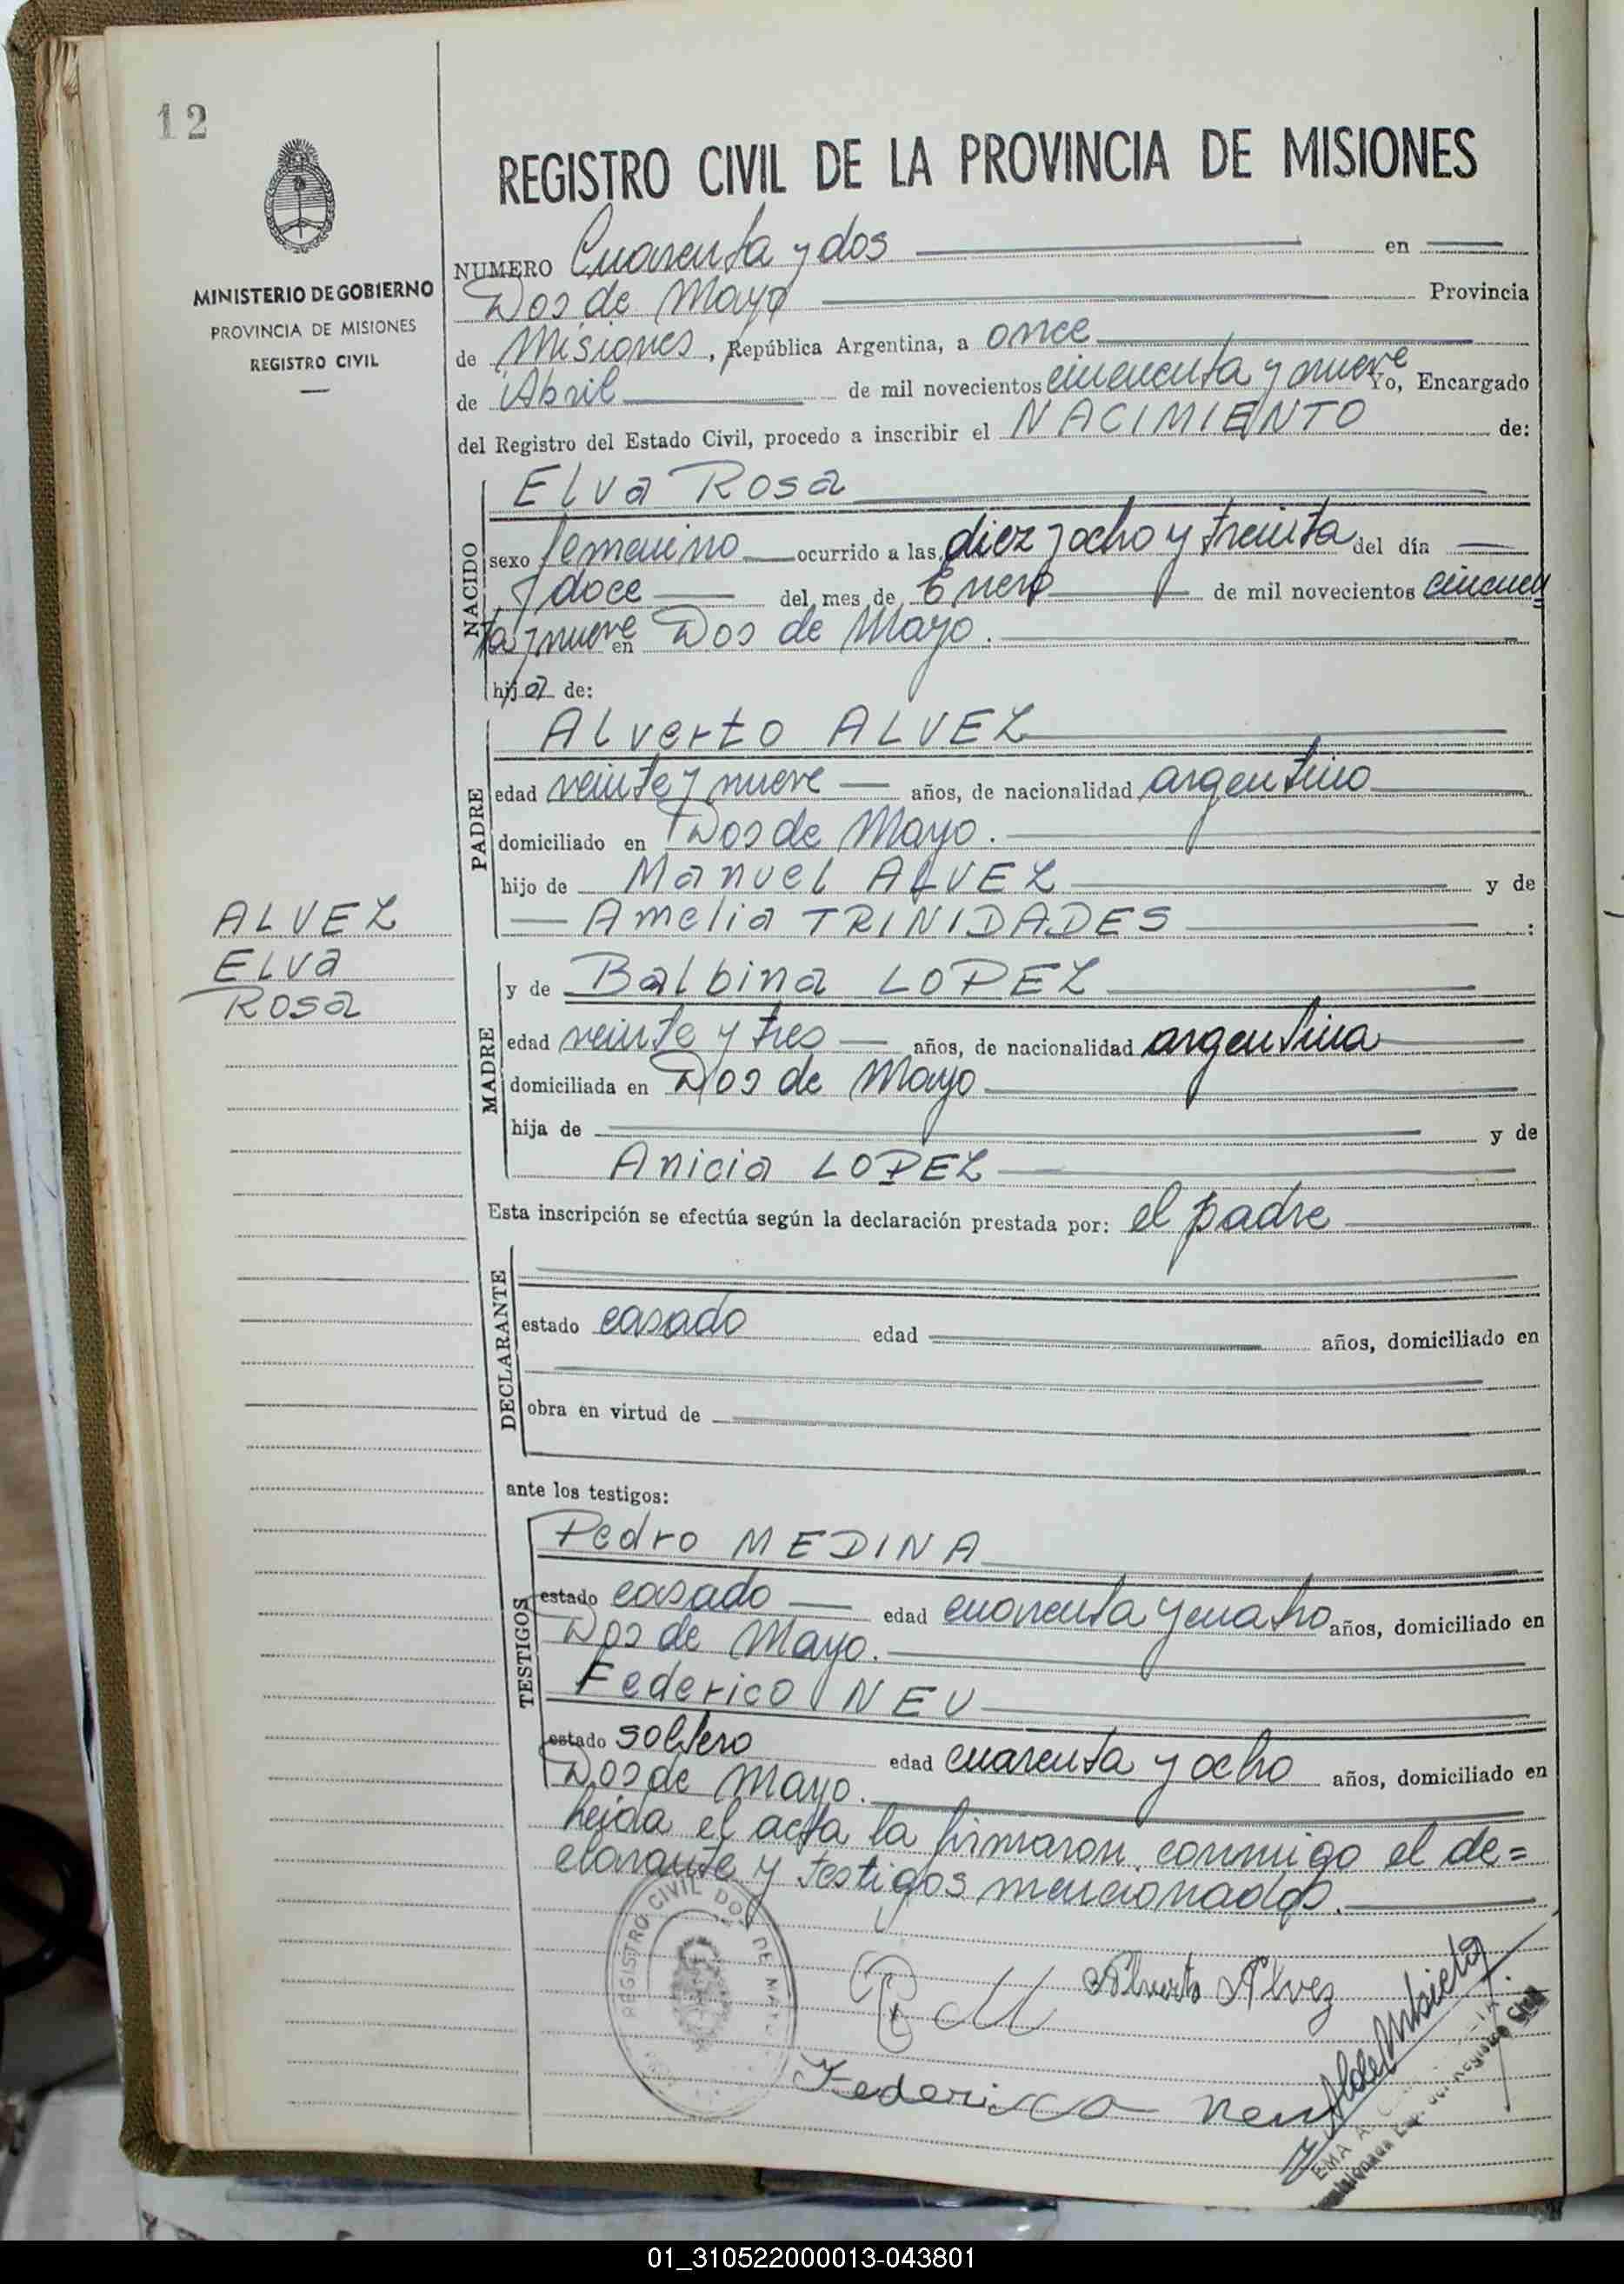 12
REGISTRO CIVIL DE LA PROVINCIA DE MISIONES
MINISTERIO DE GOBIERNO
PROVINCIA DE MISIONES
REGISTRO CIVIL
NUMERO Cuarenta y dos en
Dos de Mayo Provincia
de Misiones, República Argentina, a once
de Abril de mil novecientos cincuenta y nueve Yo, Encargado
del Registro del Estado Civil, procedo a inscribir el NACIMIENTO de:
NACIDO
Elva Rosa
sexo femenino ocurrido a las diez y ocho y treinta del día
doce del mes de Enero de mil novecientos cincuen
ta y nueve en Dos de Mayo.
hija de:
PADRE
Alverto ALVEZ
edad veinte y nueve años, de nacionalidad argentino
domiciliado en Dos de Mayo.
hijo de Manuel ALVEZ y de
Amelia TRINIDADES :
ALVEZ
Elva
Rosa
MADRE
y de Balbina LOPEZ
edad veinte y tres años, de nacionalidad argentina
domiciliada en Dos de Mayo
hija de y de
Anicia LOPEZ
Esta inscripción se efectúa según la declaración prestada por: el padre
DECLARANTE
estado casado edad años, domiciliado en
obra en virtud de
ante los testigos:
TESTIGOS
Pedro MEDINA
estado casado edad cuarenta y cuatro años, domiciliado en
Dos de Mayo.
Federico NEU
estado soltero edad cuarenta y ocho años, domiciliado en
Dos de Mayo.
Leida el acta la firmaron conmigo el de=
clarante y testigos mencionados.
REGISTRO CIVIL DOS DE MAYO
Alverto Alvez
Federico Neu
EMA A.
del Registro Civil
01_310522000013-043801